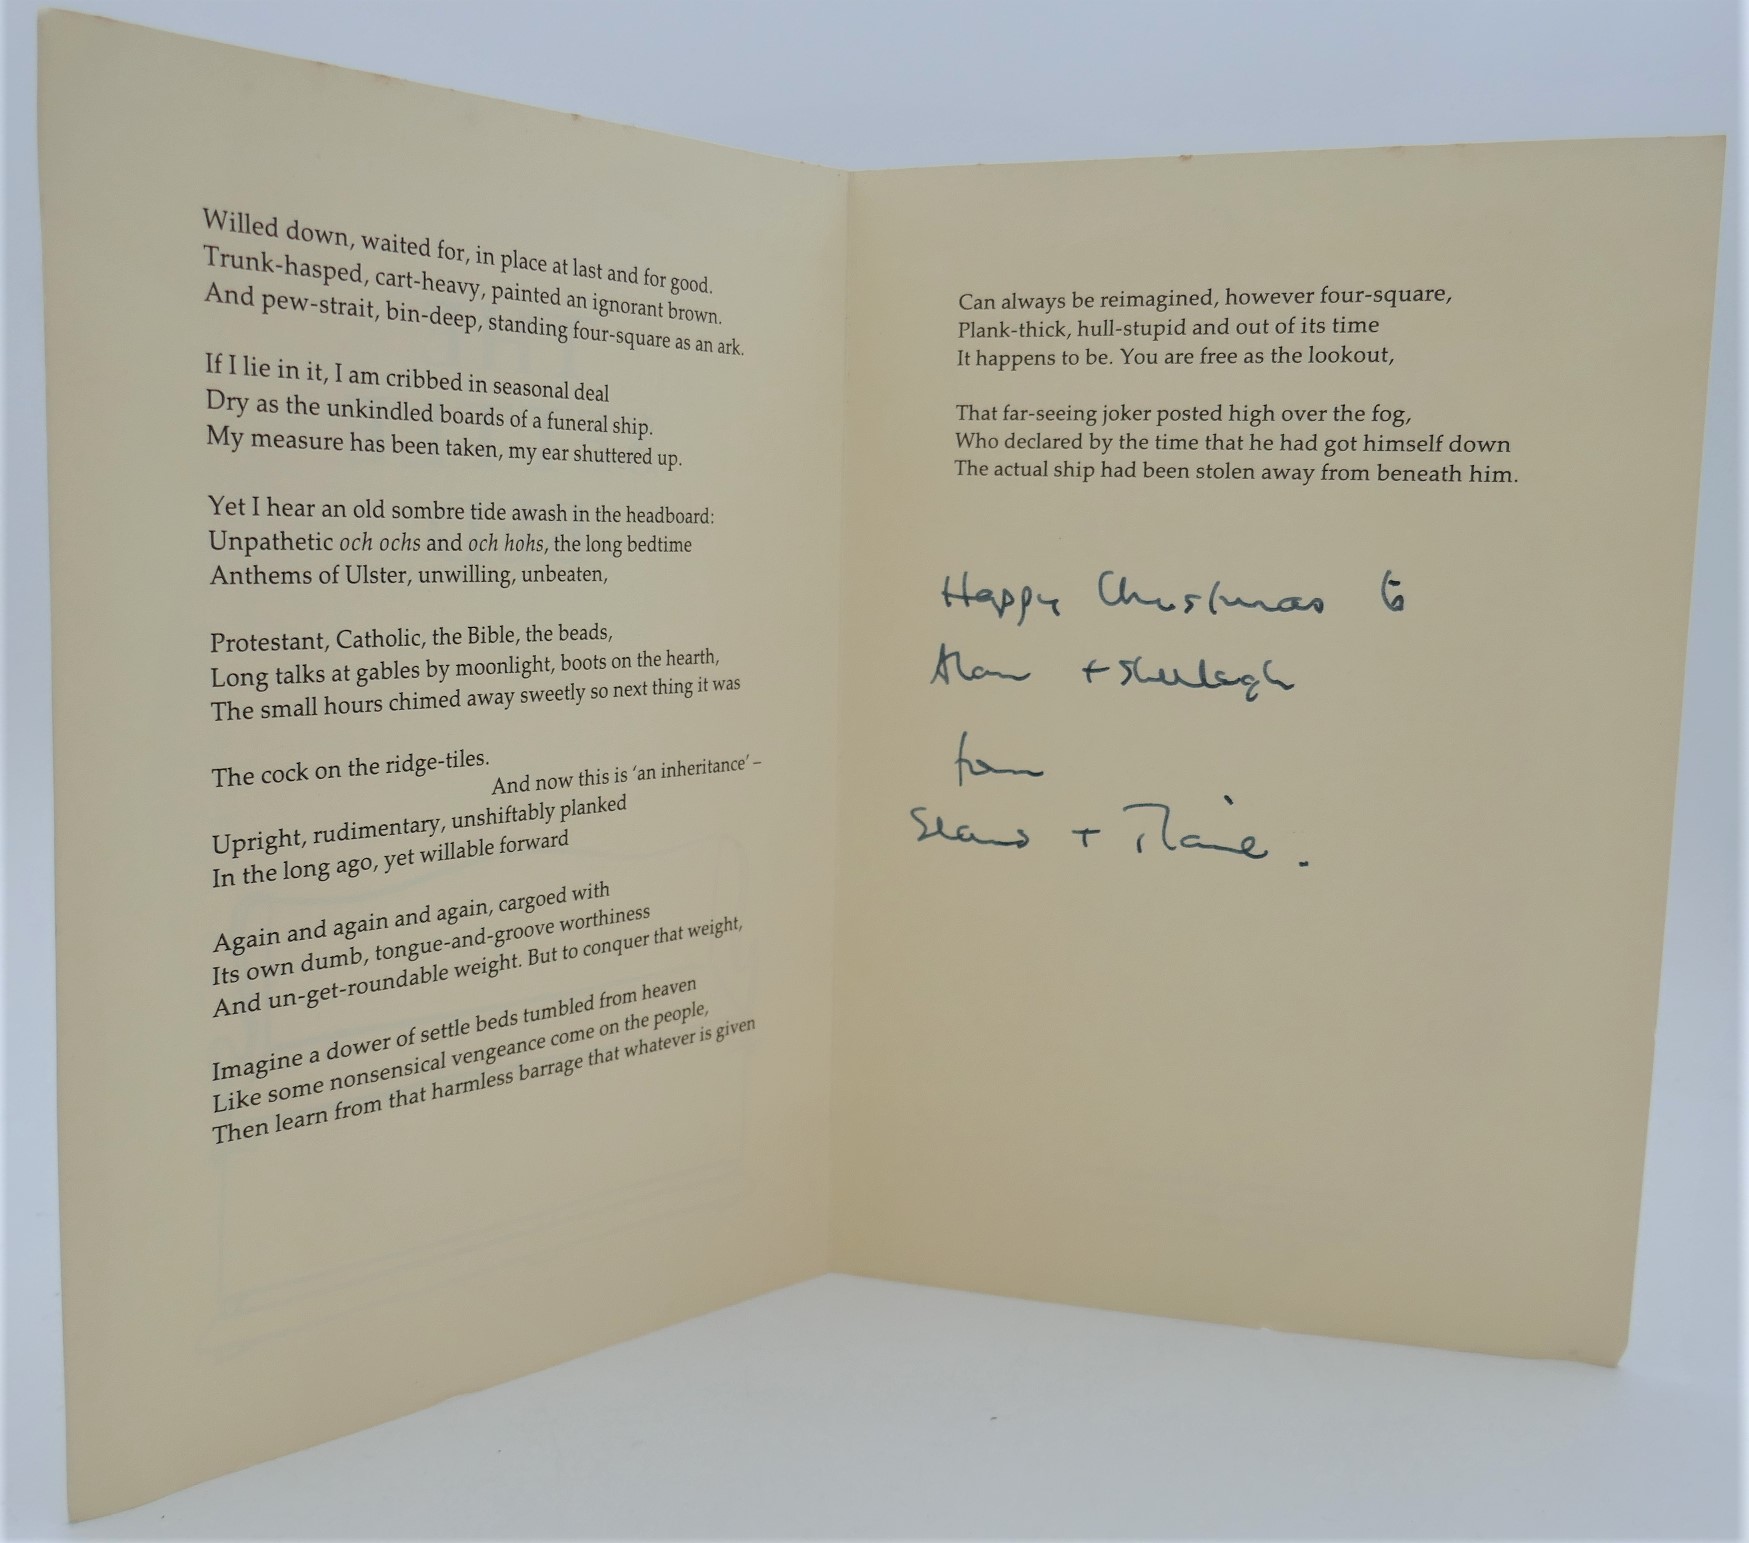 Willed down, waited for, in place at last and for good.
Trunk-hasped, cart-heavy, painted an ignorant brown.
And pew-strait, bin-deep, standing four-square as an ark.
If I lie in it, I am cribbed in seasonal deal
Dry as the unkindled boards of a funeral ship.
My measure has been taken, my ear shuttered up.
Yet I hear an old sombre tide awash in the headboard:
Unpathetic och ochs and och hohs, the long bedtime
Anthems of Ulster, unwilling, unbeaten,
Protestant, Catholic, the Bible, the beads,
Long talks at gables by moonlight, boots on the hearth,
The small hours chimed away sweetly so next thing it was
The cock on the ridge-tiles.
And now this is ‘an inheritance’ –
Upright, rudimentary, unshiftably planked
In the long ago, yet willable forward
Again and again and again, cargoed with
Its own dumb, tongue-and-groove worthiness
And un-get-roundable weight. But to conquer that weight,
Imagine a dower of settle beds tumbled from heaven
Like some nonsensical vengeance come on the people,
Then learn from that harmless barrage that whatever is given
Can always be reimagined, however four-square,
Plank-thick, hull-stupid and out of its time
It happens to be. You are free as the lookout,
That far-seeing joker posted high over the fog,
Who declared by the time that he had got himself down
The actual ship had been stolen away from beneath him.
Happy Christmas to
Alan + Sheelagh
from
Seamus + Marie.